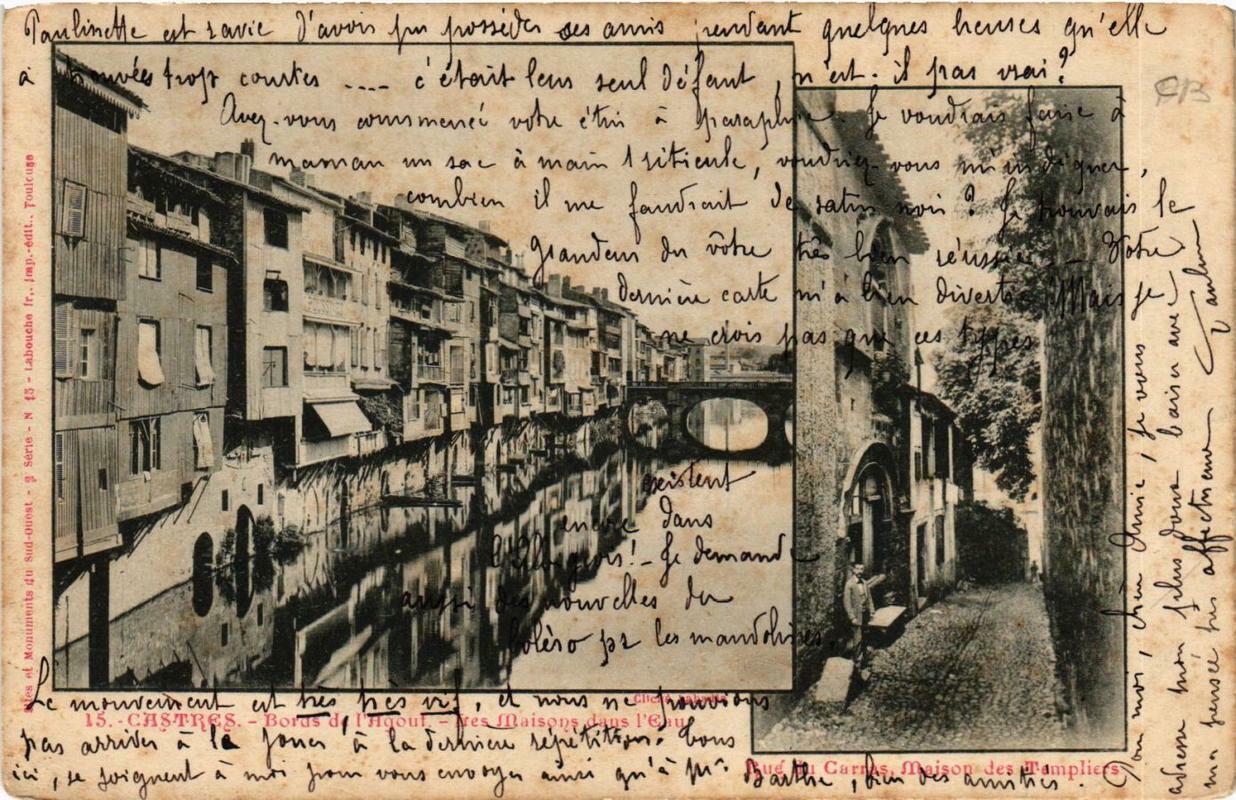 Paulinette est ravie d'avoir pu posséder ses amis pendant quelques heures qu'elle
a trouvées trop courtes .... c'était leur seul défaut, n'est-il pas vrai?
Avez-vous commencé votre étui à parapluie. Je voudrais faire à
maman un sac à main réticule, voudriez-vous m'indiquer,
combien il me faudrait de satin noir? Je trouvais la
grandeur du vôtre très bien réussie. - Votre
dernière carte m'a bien divertie. Mais je
ne crois pas que ces types
existent
encore dans
! - Je demande
aussi des nouvelles du
boléro pr les mandolines.
Le mouvement est très très vif, et nous ne pouvions
pas arriver à la jouer à la dernière répétition. Tous
ici, se joignent à moi pour vous envoyer ainsi qu'à Mr Barthe, bien des amitiés.
Pour moi, chère Amie, je vous
adresse mon plus doux baiser avec
ma pensée très affectueuse
15. - CASTRES. - Bords de l'Agout. - Les Maisons dans l'Eau
Rue du Carras, Maison des Templiers
Cliché Labouche
Sites et Monuments du Sud-Ouest - 2e Série - N 15 - Labouche fr., Imp.-édit., Toulouse